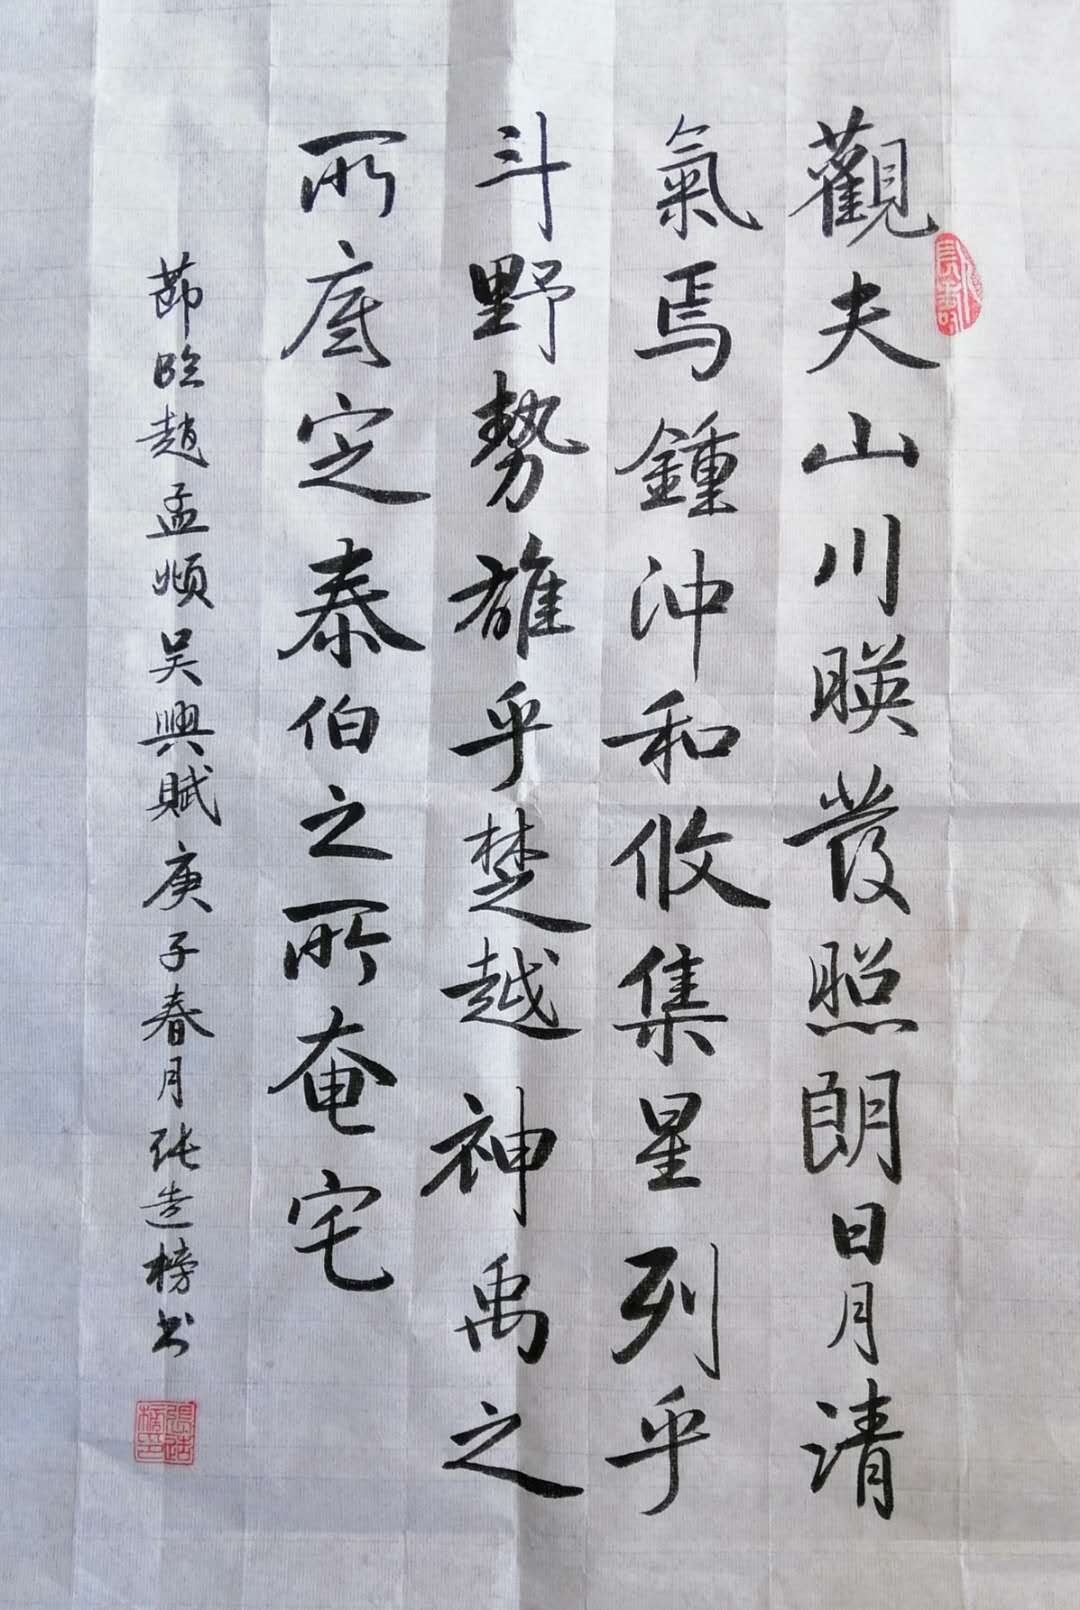 觀夫山川暎發照朗日月清
氣焉鍾沖和攸集星列乎
斗野勢雄乎楚越神禹之
所底定泰伯之所奄宅
節臨趙孟頫吴興賦庚子春月张造榜书